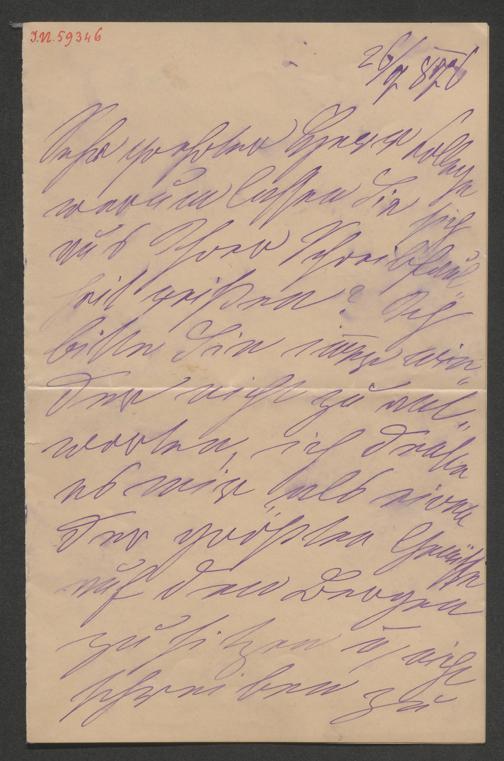 I.N. 59346
26/9 876
Sehr geehrter Herr College
warum lassen Sie sich
aus Ihrer Schreibfaul¬
heit reißen? Ich
bitte Sie immer wie¬
der nicht zu ant¬
worten, ich denke
es mir als einen
der größten Genüsse
auf den Bergen
zu sitzen u. nicht
schreiben zu